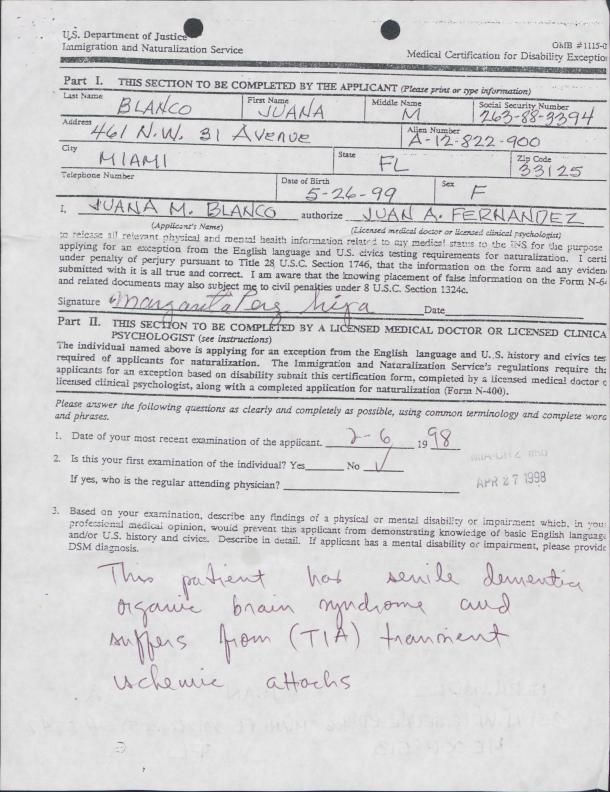 U.S. Department of Justice
Immigration and Naturalization Service
OMB #1115-0
Medical Certification for Disability Exception
Part I. THIS SECTION TO BE COMPLETED BY THE APPLICANT (Please print or type information)
Last Name First Name Middle Name Social Security Number
BLANCO JUANA M 263-88-3394
Address Alien Number
461 N.W. 31 Avenue A-12-822-900
City State Zip Code
MIAMI FL 33125
Telephone Number Date of Birth Sex
5-26-99 F
I, JUANA M. BLANCO authorize JUAN A. FERNANDEZ
(Applicant's Name) (Licensed medical doctor or licensed clinical psychologist)
to release all relevant physical and mental health information related to my medical status to the INS for the purpose
applying for an exception from the English language and U.S. civics testing requirements for naturalization. I certi
under penalty of perjury pursuant to Title 28 U.S.C. Section 1746, that the information on the form and any eviden
submitted with it is all true and correct. I am aware that the knowing placement of false information on the Form N-6
and related documents may also subject me to civil penalties under 8 U.S.C. Section 1324c.
Signature Margarita Date
Part II. THIS SECTION TO BE COMPLETED BY A LICENSED MEDICAL DOCTOR OR LICENSED CLINICA
PSYCHOLOGIST (see instructions)
The individual named above is applying for an exception from the English language and U.S. history and civics tes
required of applicants for naturalization. The Immigration and Naturalization Service's regulations require tha
applicants for an exception based on disability submit this certification form, completed by a licensed medical doctor o
licensed clinical psychologist, along with a completed application for naturalization (Form N-400).
Please answer the following questions as clearly and completely as possible, using common terminology and complete word
and phrases.
1. Date of your most recent examination of the applicant. 2-6 1998
2. Is this your first examination of the individual? Yes No ✓
If yes, who is the regular attending physician?
APR 27 1998
3. Based on your examination, describe any findings of a physical or mental disability or impairment which, in you
professional medical opinion, would prevent this applicant from demonstrating knowledge of basic English language
and/or U.S. history and civics. Describe in detail. If applicant has a mental disability or impairment, please provide
DSM diagnosis.
This patient has senile dementia
organic brain syndrome and
suffers from (TIA) transient
ischemic attacks